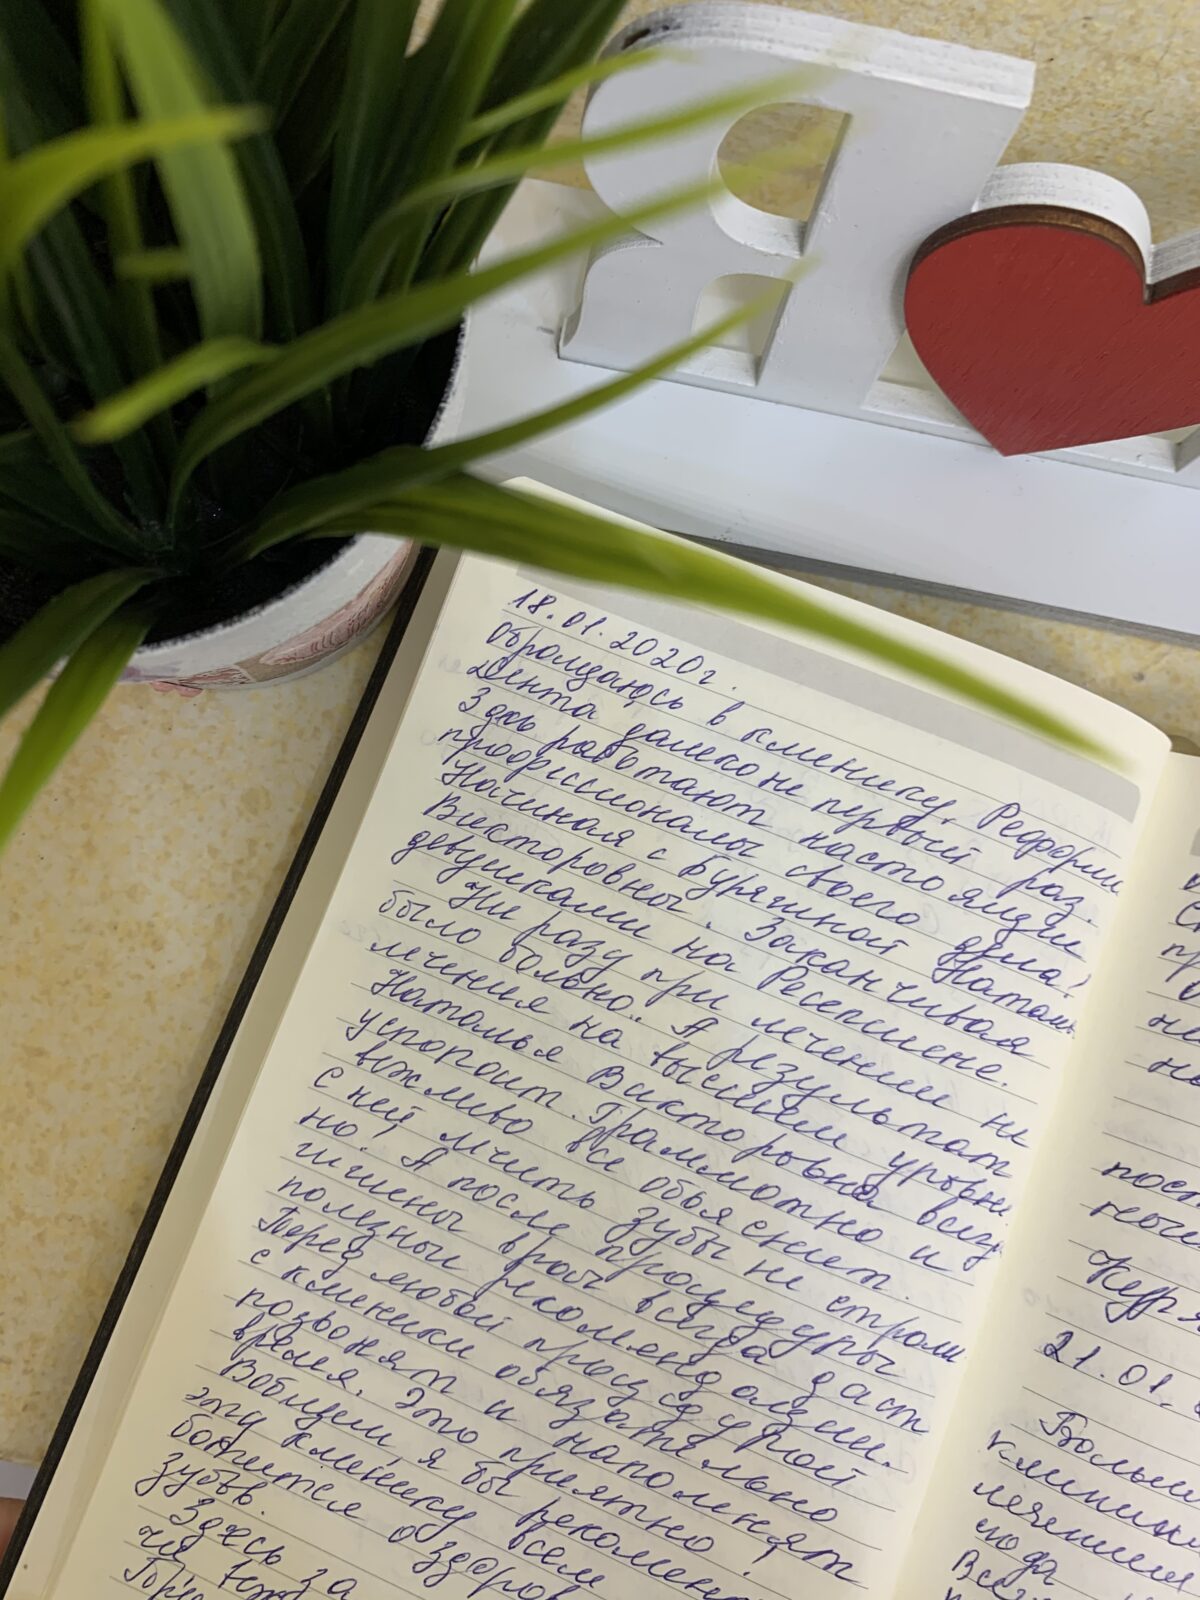 Я
18.01.2020г.
Обращаюсь в клинику, Реформ
Дента далеко не первый раз.
Здесь работают настоящие
профессионалы своего дела!
Начиная с Буряшной Натальи
Викторовны. Заканчивая
девушками на Ресепшене.
Ни разу при лечении не
было больно.. А результат
лечения на высшем уровне.
Наталья Викторовна всегда
успокоит. Грамотно и
вежливо все объяснит.
с ней лечить зубы не страш
но! А после процедуры
гигиены врач всегда даст
полезные рекомендации.
Перед любой процедурой
с клиники обязательно
позвонят и напомнят
время. Это приятно!
Вобщем, я бы рекоменд
эту клинику всем
ботится о здоров
зубов.
Здесь за
21.01.
Больш
лечения